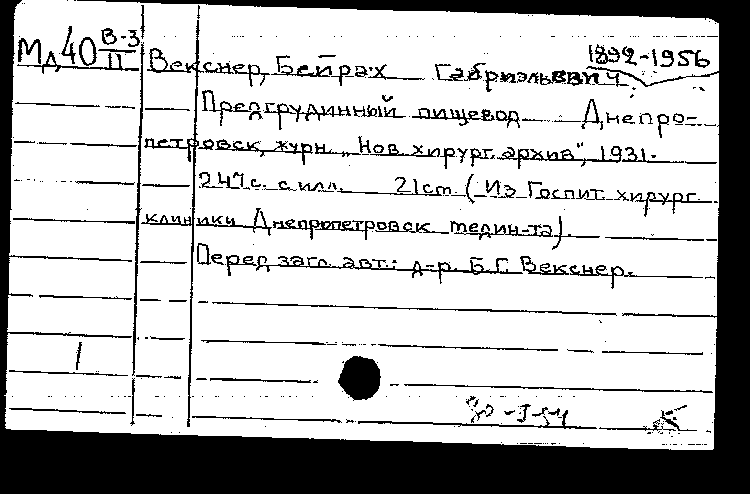 Мд40 В-3/II
1892-1956
Векснер, Бейрах Габриэльевич.
Предгрудинный пищевод. Днепро-
петровск, журн. „Нов. хирург. архив", 1931.
247с. с илл. 21ст. (Из Госпит. хирург.
клиники Днепропетровск. медин-та)
Перед загл. авт.: д-р. Б.Г. Векснер.
1